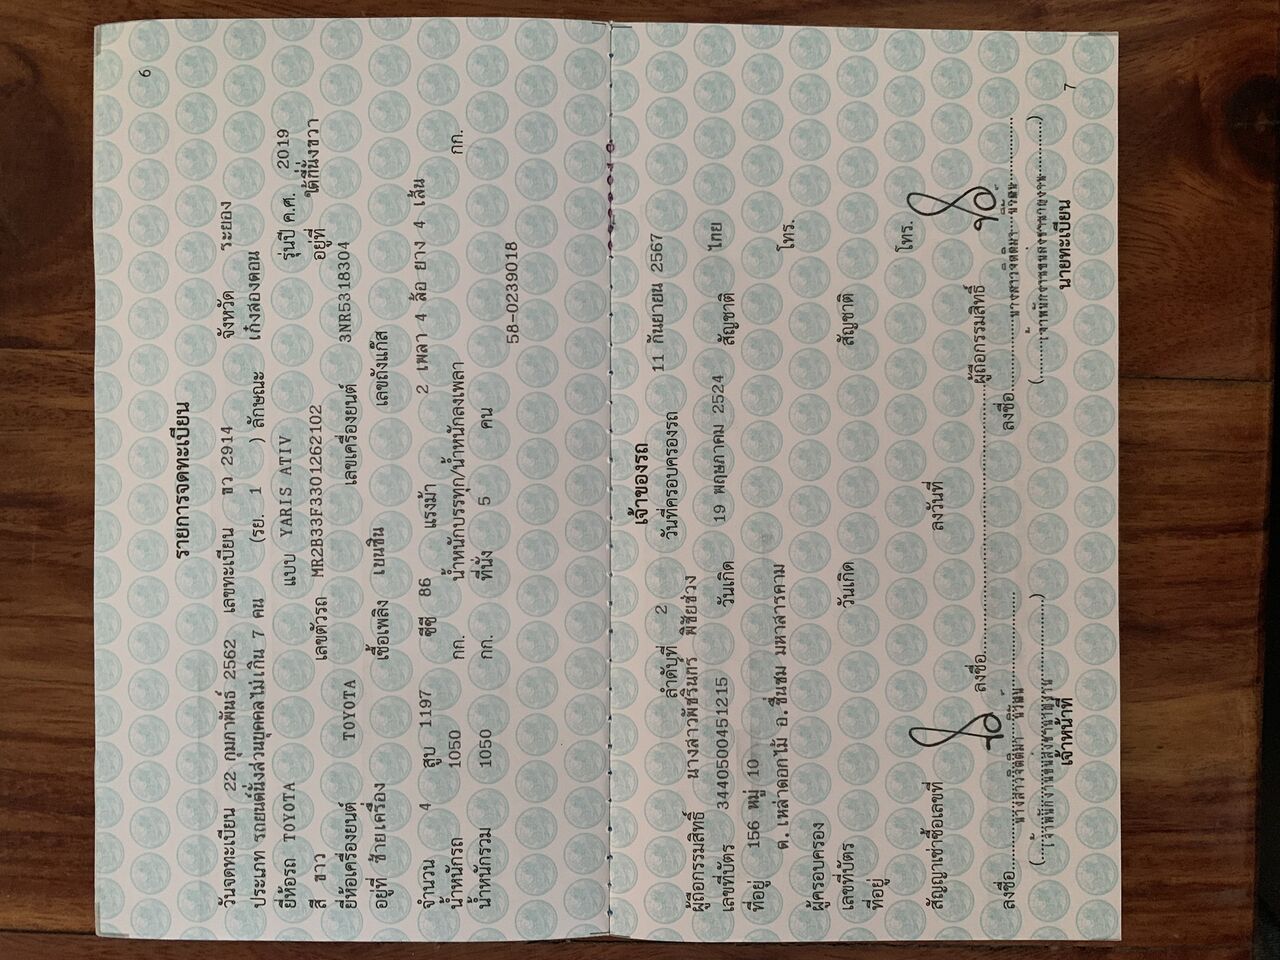 6
รายการจดทะเบียน
วันจดทะเบียน 22 กุมภาพันธ์ 2562 เลขทะเบียน ขว 2914 จังหวัด ระยอง
ประเภท รถยนต์นั่งส่วนบุคคลไม่เกิน 7 คน (รย. 1 ) ลักษณะ เก๋งสองตอน
ยี่ห้อรถ TOYOTA แบบ YARIS ATIV รุ่นปี ค.ศ. 2019
สี ขาว เลขตัวรถ MR2B33F3301262102 อยู่ที่ ใต้ที่นั่งขวา
ยี่ห้อเครื่องยนต์ TOYOTA เลขเครื่องยนต์ 3NR5318304
อยู่ที่ ซ้ายเครื่อง เชื้อเพลิง เบนซิน เลขถังแก๊ส
จำนวน 4 สูบ 1197 ซีซี 86 แรงม้า 2 เพลา 4 ล้อ ยาง 4 เส้น
น้ำหนักรถ 1050 กก. น้ำหนักบรรทุก/น้ำหนักลงเพลา กก.
น้ำหนักรวม 1050 กก. ที่นั่ง 5 คน
58-0239018
เจ้าของรถ
ลำดับที่ 2 วันที่ครอบครองรถ 11 กันยายน 2567
ผู้ถือกรรมสิทธิ์ นางสาวพัชรินทร์ พิชัยช่วง
เลขที่บัตร 3440500451215 วันเกิด 19 พฤษภาคม 2524 สัญชาติ ไทย
ที่อยู่ 156 หมู่ 10
ต.เหล่าดอกไม้ อ.ชื่นชม มหาสารคาม โทร.
ผู้ครอบครอง
เลขที่บัตร วันเกิด สัญชาติ
ที่อยู่
โทร.
สัญญาเช่าซื้อเลขที่ ลงวันที่
ลงชื่อ ผู้ถือกรรมสิทธิ์
ลงชื่อ ลงชื่อ
เจ้าหน้าที่ นายทะเบียน
7